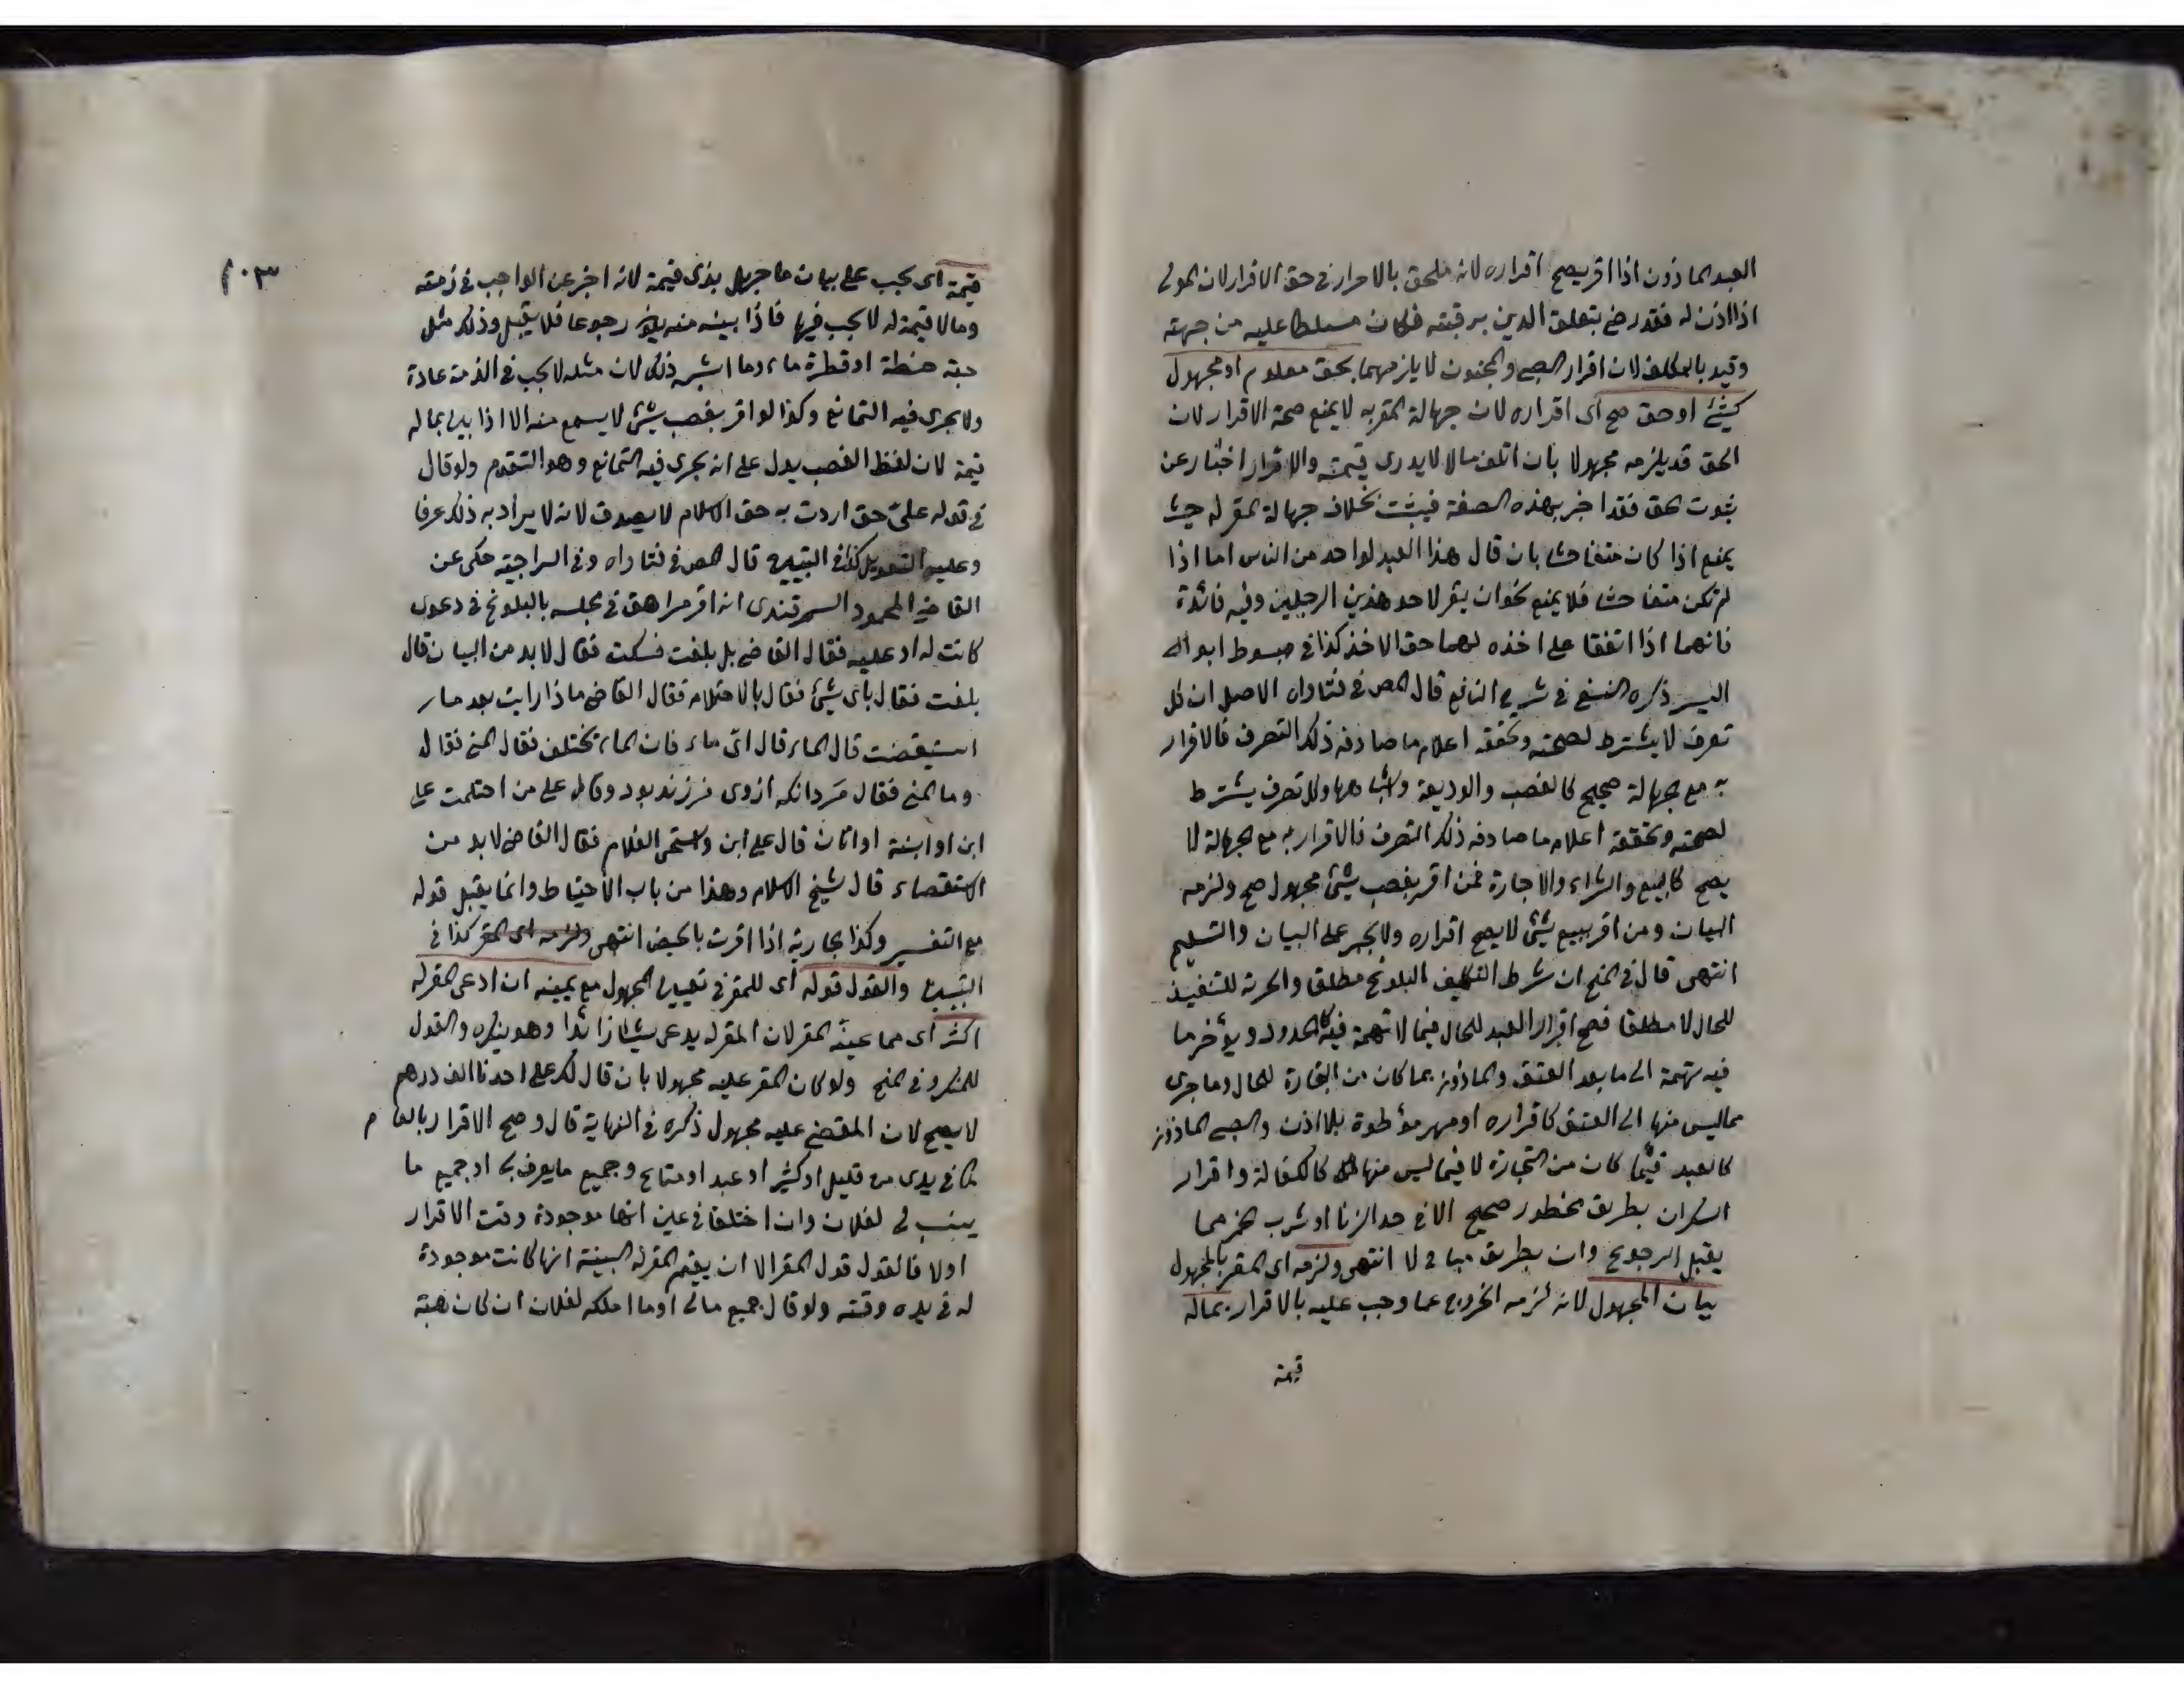 العبد الماذون اذا اقر يصح اقراره لانه ملحق بالاحرار في حق الاقرار لان المولى
اذا اذن له فقد رضي بتعلق الدين برقبته فكان مسلطا عليه من جهته
وقيد بالمكلف لان اقرار الصبي والمجنون لا يلزمهما بحق معلوم او مجهول
كشئ او حق صح اى اقراره لان جهالة المقر به لا يمنع صحة الاقرار لان
الحق قد يلزمه مجهولا بان اتلف مالا لا يدرى قيمته والاقرار اخبار عن
ثبوت الحق فقد اخبر بهذه الصفة فيثبت بخلاف جهالة المقر له حيث
يمنع اذا كان متفاحشا بان قال هذا العبد لواحد من الناس اما اذا
لم تكن متفاحشا فلا يمنع نحو ان يقر لاحد هذين الرجلين وفيه فائدة
فانهما اذا اتفقا على اخذه لهما حق الاخذ كذا في مبسوط ابو ال
اليسر ذكره النسفي في شرح النافع قال المص في فتاواه الاصل ان كل
تصرف لا يشترط لصحته وتحققه اعلام ما صادفه ذلك التصرف فالاقرار
به مع الجهالة صحيح كالغصب والوديعة واشباهها وكل تصرف يشترط
لصحته وتحققه اعلام ما صادفه ذلك التصرف فالاقرار به مع الجهالة لا
يصح كالبيع والشراء والاجارة فمن اقر بغصب شئ مجهول صح ولزمه
البيان ومن اقر ببيع شئ لا يصح اقراره ولا يجبر على البيان والتسليم
انتهى قال في المنح ان شرط التكليف البلوغ مطلقا والحرية للتنفيذ
للحال لا مطلقا فصح اقرار العبد للحال فيما لا تهمة فيه كالحدود ويؤخر ما
فيه تهمة الى ما بعد العتق والماذون بما كان من التجارة للحال وما جرى
مما ليس منها الى العتق كاقراره او مهر موطوة بلا اذن والصبي الماذون
كالعبد فيما كان من التجارة لا فيما ليس منها كالكفالة واقرار
السكران بطريق محظور صحيح الا في حد الزنا او شرب الخمر مما
يقبل الرجوع وان بطريق مباح لا انتهى ولزمه اى المقر بالمجهول
بيان المجهول لانه لزمه الخروج عما وجب عليه بالاقرار بماله
قيمة
٢٠٣
قيمة اى يجب على بيان ما جهل بذى قيمة لانه اخبر عن الواجب في ذمته
وما لا قيمة له لا يجب فيها فاذا بينه منه يكون رجوعا فلا يقبل وذلك مثل
حبة حنطة او قطرة ماء وما اشبه ذلك لان مثله لا يجب في الذمة عادة
ولا يجرى فيه التمانع وكذا لو اقر بغصب شئ لا يسمع منه الا اذا بين بماله
قيمة لان لفظ الغصب يدل على انه يجرى فيه التمانع وهو التقوم ولو قال
في قوله على حق اردت به حق الاسلام لا يصدق لانه لا يراد به ذلك عرفا
وعليه التعويل كذا في التبيين قال المص في فتاواه وفي السراجية حكى عن
القاضي المحمود السمرقندى انه اقر مراهق في مجلسه بالبلوغ في دعوى
كانت له او عليه فقال القاضي بل بلغت فسكت فقال لا بد من البيان قال
بلغت فقال باى شئ فقال بالاحتلام فقال القاضي ماذا رايت بعد ما
استيقضت قال الماء قال اى ماء فان الماء يختلف فقال المني فقال
وما المني فقال مردانكه ازوى فرزند بود وقال على من احتلمت على
ابن او ابنة او اتان قال على ابن واستحى الغلام فقال القاضي لا بد من
الاستقصاء قال شيخ الاسلام وهذا من باب الاحتياط وانما يقبل قوله
مع التفسير وكذا جارية اذا اقرت بالحيض انتهى ولزمه اى المقر كذا في
التبيين والقول قوله اى للمقر في تعيين المجهول مع يمينه ان ادعى المقر له
اكثر اى مما عينه المقر لان المقر له يدعى شيئا زائدا وهو ينكره والقول
للمنكر وفي المنح ولو كان المقر عليه مجهولا بان قال لك على احدنا الف درهم
لا يصح لان المقضي عليه مجهول ذكره في النهاية قال وصح الاقرار بالعام
كما في يدى من قليل او كثير او عبد او متاع وجميع ما يعرف بى او جميع ما
ينسب لى لفلان وان اختلفا في عين انها موجودة وقت الاقرار
اولا فالقول قول المقر الا ان يقيم المقر له البينة انها كانت موجودة
له في يده وقته ولو قال جميع مالى او ما املكه لفلان ان كان هبة